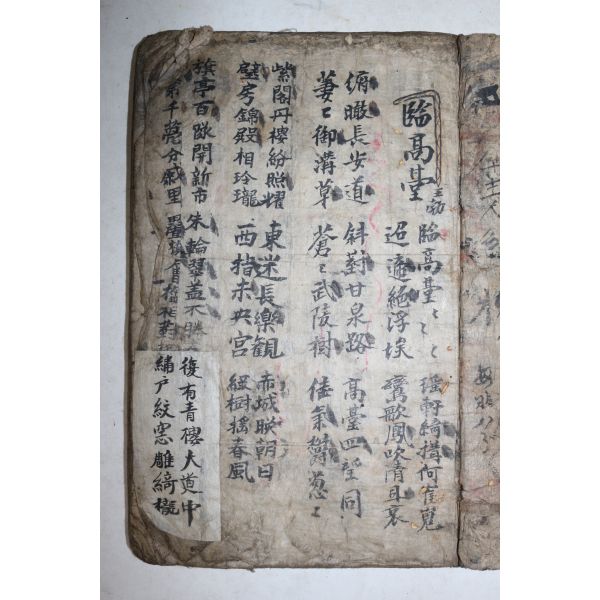 臨高臺 王勃
臨高臺〻〻 瑤軒綺構何崔嵬
迢遞絕浮埃 鸞歌鳳吹清且哀
俯瞰長安道 斜對甘泉路 高臺四望同
萋〻御溝草 蒼〻武陵樹 佳氣鬱葱〻
紫閣丹樓紛照耀 東迷長樂観 赤城映朝日
壁房錦殿相玲瓏 西指未央宮 綠樹搖春風
旗亭百隊開新市 朱輪翠盖不勝
千甍分戚里 相對
復有青樓大道中
繡戶紋窓雕綺櫳